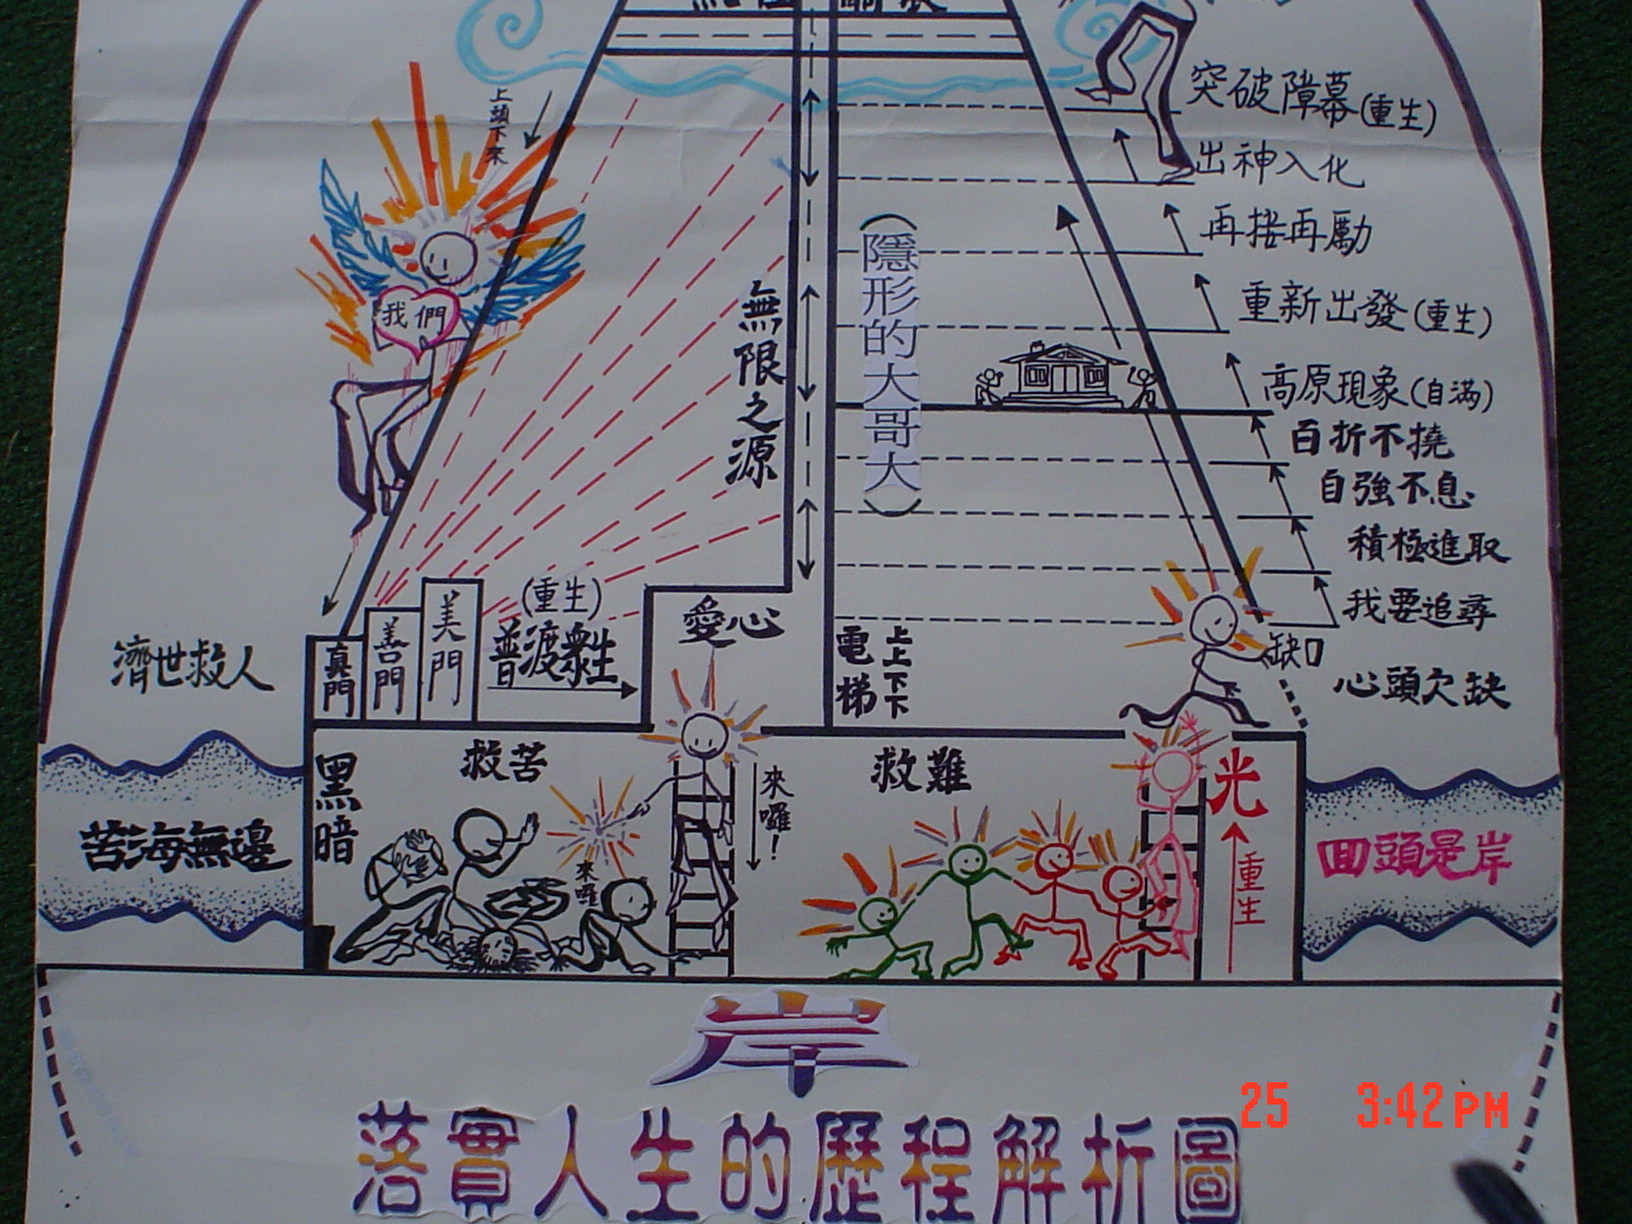 突破障幕(重生)
上頭下來
出神入化
再接再勵
重新出發(重生)
我們
無限之源
(隱形的大哥大)
高原現象(自滿)
百折不撓
自強不息
積極進取
我要追尋
缺口
心頭欠缺
濟世救人
真門
善門
美門
(重生)
普渡眾生
愛心
電梯
上上下下
黑暗
救苦
來囉!
來囉
救難
光
重生
苦海無邊
回頭是岸
岸
落實人生的歷程解析圖
25 3:42PM